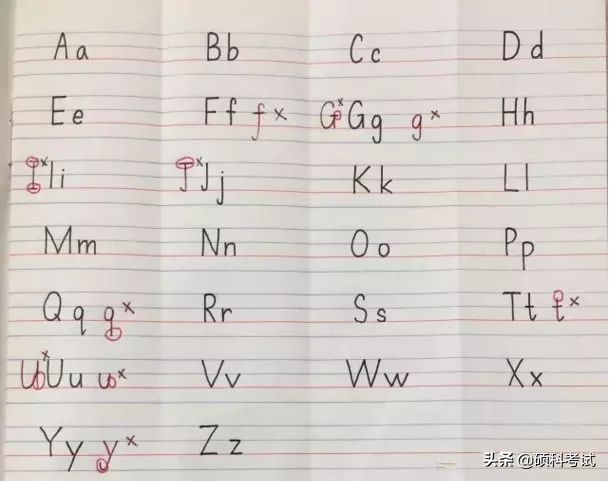 Aa Bb Cc Dd
Ee Ff f× G×Gg g× Hh
I×Ii J×Jj Kk Ll
Mm Nn Oo Pp
Qq q× Rr Ss Tt t×
U×Uu u× Vv Ww Xx
Yy y× Zz
头条 @硕科考试